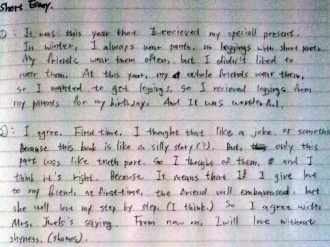 Short Essay.
① : It was this year that I recieved my special present.
In winter, I always wear pants, no leggings with short pants.
My friends wear them often, but I didn't liked to
wear them. At this year, my whole friends wear them,
so I wanted to get leggings, so I recieved leggings from
my parents for my birthday. And It was wonderful.
② : I agree. First time, I thought that like a joke or somethin
Because this book is like a silly story (?). But only this
part was like truth part. So I thought of them, and I
think it's right. Because It means that If I give love
to my friend, at first-time, the friend will embarrassed, but
she will love my step by step. (I think.) So I agree with
Mrs. Jwels's saying. From now on, I will love without
shyness. (shames).